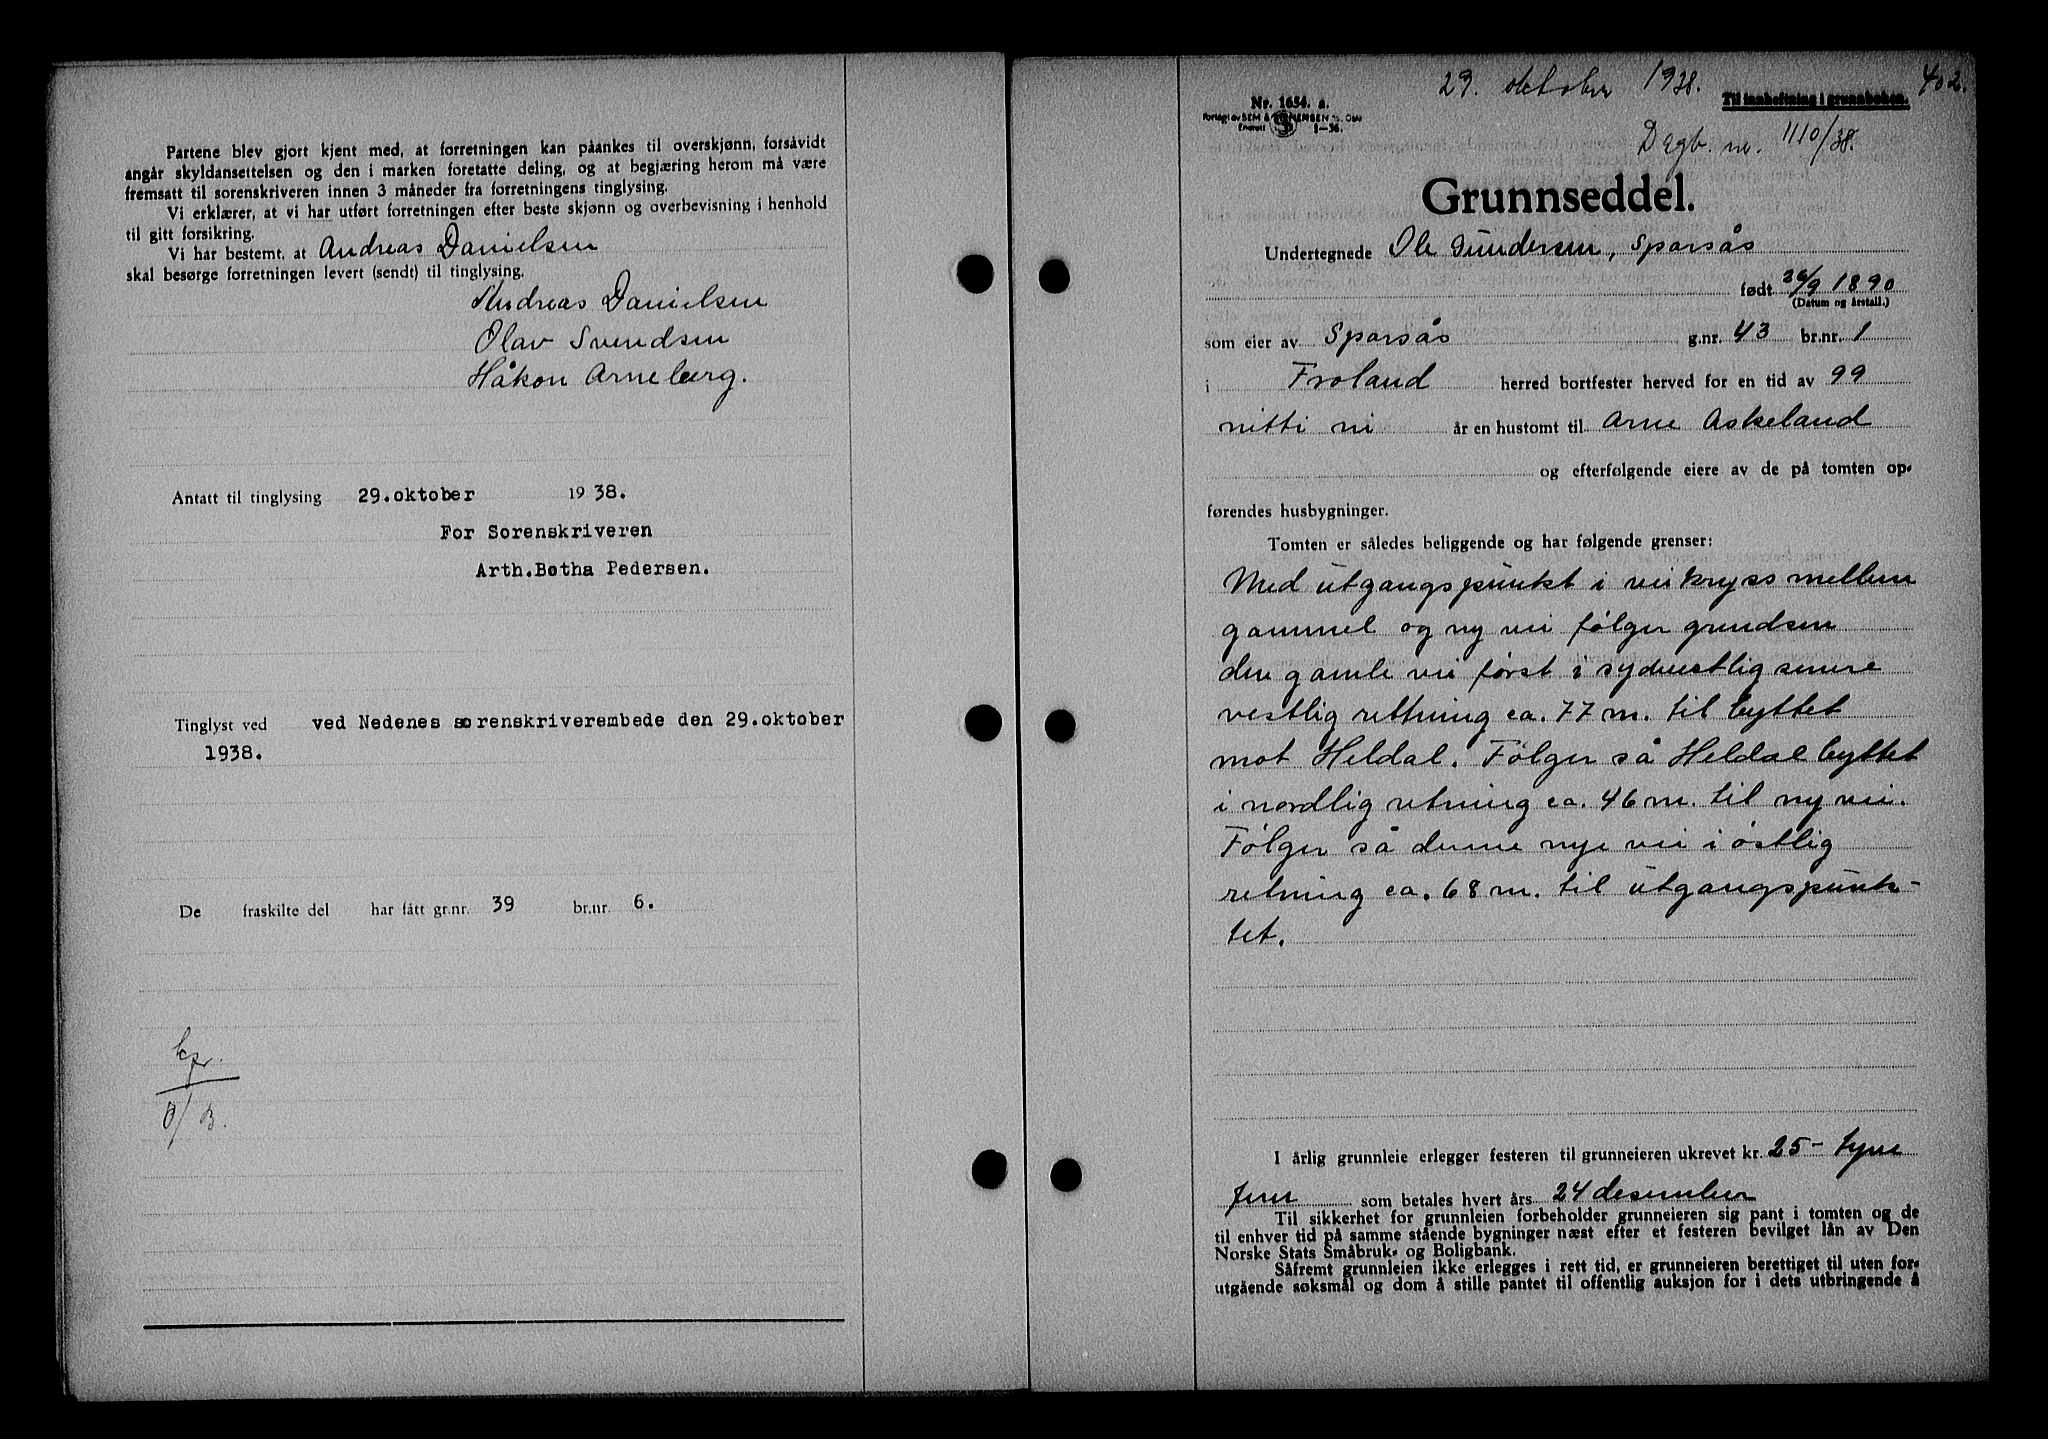 Partene blev gjort kjent med, at forretningen kan påankes til overskjønn, forsåvidt
angår skyldansettelsen og den i marken foretatte deling, og at begjæring herom må være
fremsatt til sorenskriveren innen 3 måneder fra forretningens tinglysing.
Vi erklærer, at vi har utført forretningen efter beste skjønn og overbevisning i henhold
til gitt forsikring.
Vi har bestemt, at Andreas Danielsen
skal besørge forretningen levert (sendt) til tinglysing.
Andreas Danielsen
Olav Svendsen
Håkon Arneberg.
Antatt til tinglysing 29.oktober 1938.
For Sorenskriveren
Arth.Botha Pedersen.
Tinglyst ved ved Nedenes sorenskriverembede den 29.oktober
1938.
De fraskilte del har fått gr.nr. 39 br.nr. 6.
29. oktober 1938. 402.
Nr. 1654. a. Til innheftning i grunnboken.
Forlagt av SEM & STENERSEN A/S, Oslo
Enerett 1-36.
Dagb. nr. 1110/38.
Grunnseddel.
Undertegnede Ole Gundersen, Sparsås
født 26/9 1890
(Datum og årstall.)
som eier av Sparsås g.nr. 43 br.nr. 1
i Froland herred bortfester herved for en tid av 99
nitti ni år en hustomt til Arne Askeland
og efterfølgende eiere av de på tomten op-
førendes husbygninger.
Tomten er således beliggende og har følgende grenser:
Med utgangspunkt i veikryss mellem
gammel og ny vei følger grendsen
den gamle vei først i sydvestlig senere
vestlig rettning ca. 77 m. til byttet
mot Heldal. Følger så Heldal byttet
i nordlig retning ca. 46 m. til ny vei.
Følger så denne nye vei i østlig
retning ca. 68 m. til utgangspunk-
tet.
I årlig grunnleie erlegger festeren til grunneieren ukrevet kr. 25- tyve
fem som betales hvert års 24 desember
Til sikkerhet for grunnleien forbeholder grunneieren sig pant i tomten og de
til enhver tid på samme stående bygninger næst efter et festeren bevilget lån av Den
Norske Stats Småbruk- og Boligbank.
Såfremt grunnleien ikke erlegges i rett tid, er grunneieren berettiget til uten for-
utgående søksmål og dom å stille pantet til offentlig auksjon for i dets utbringende å